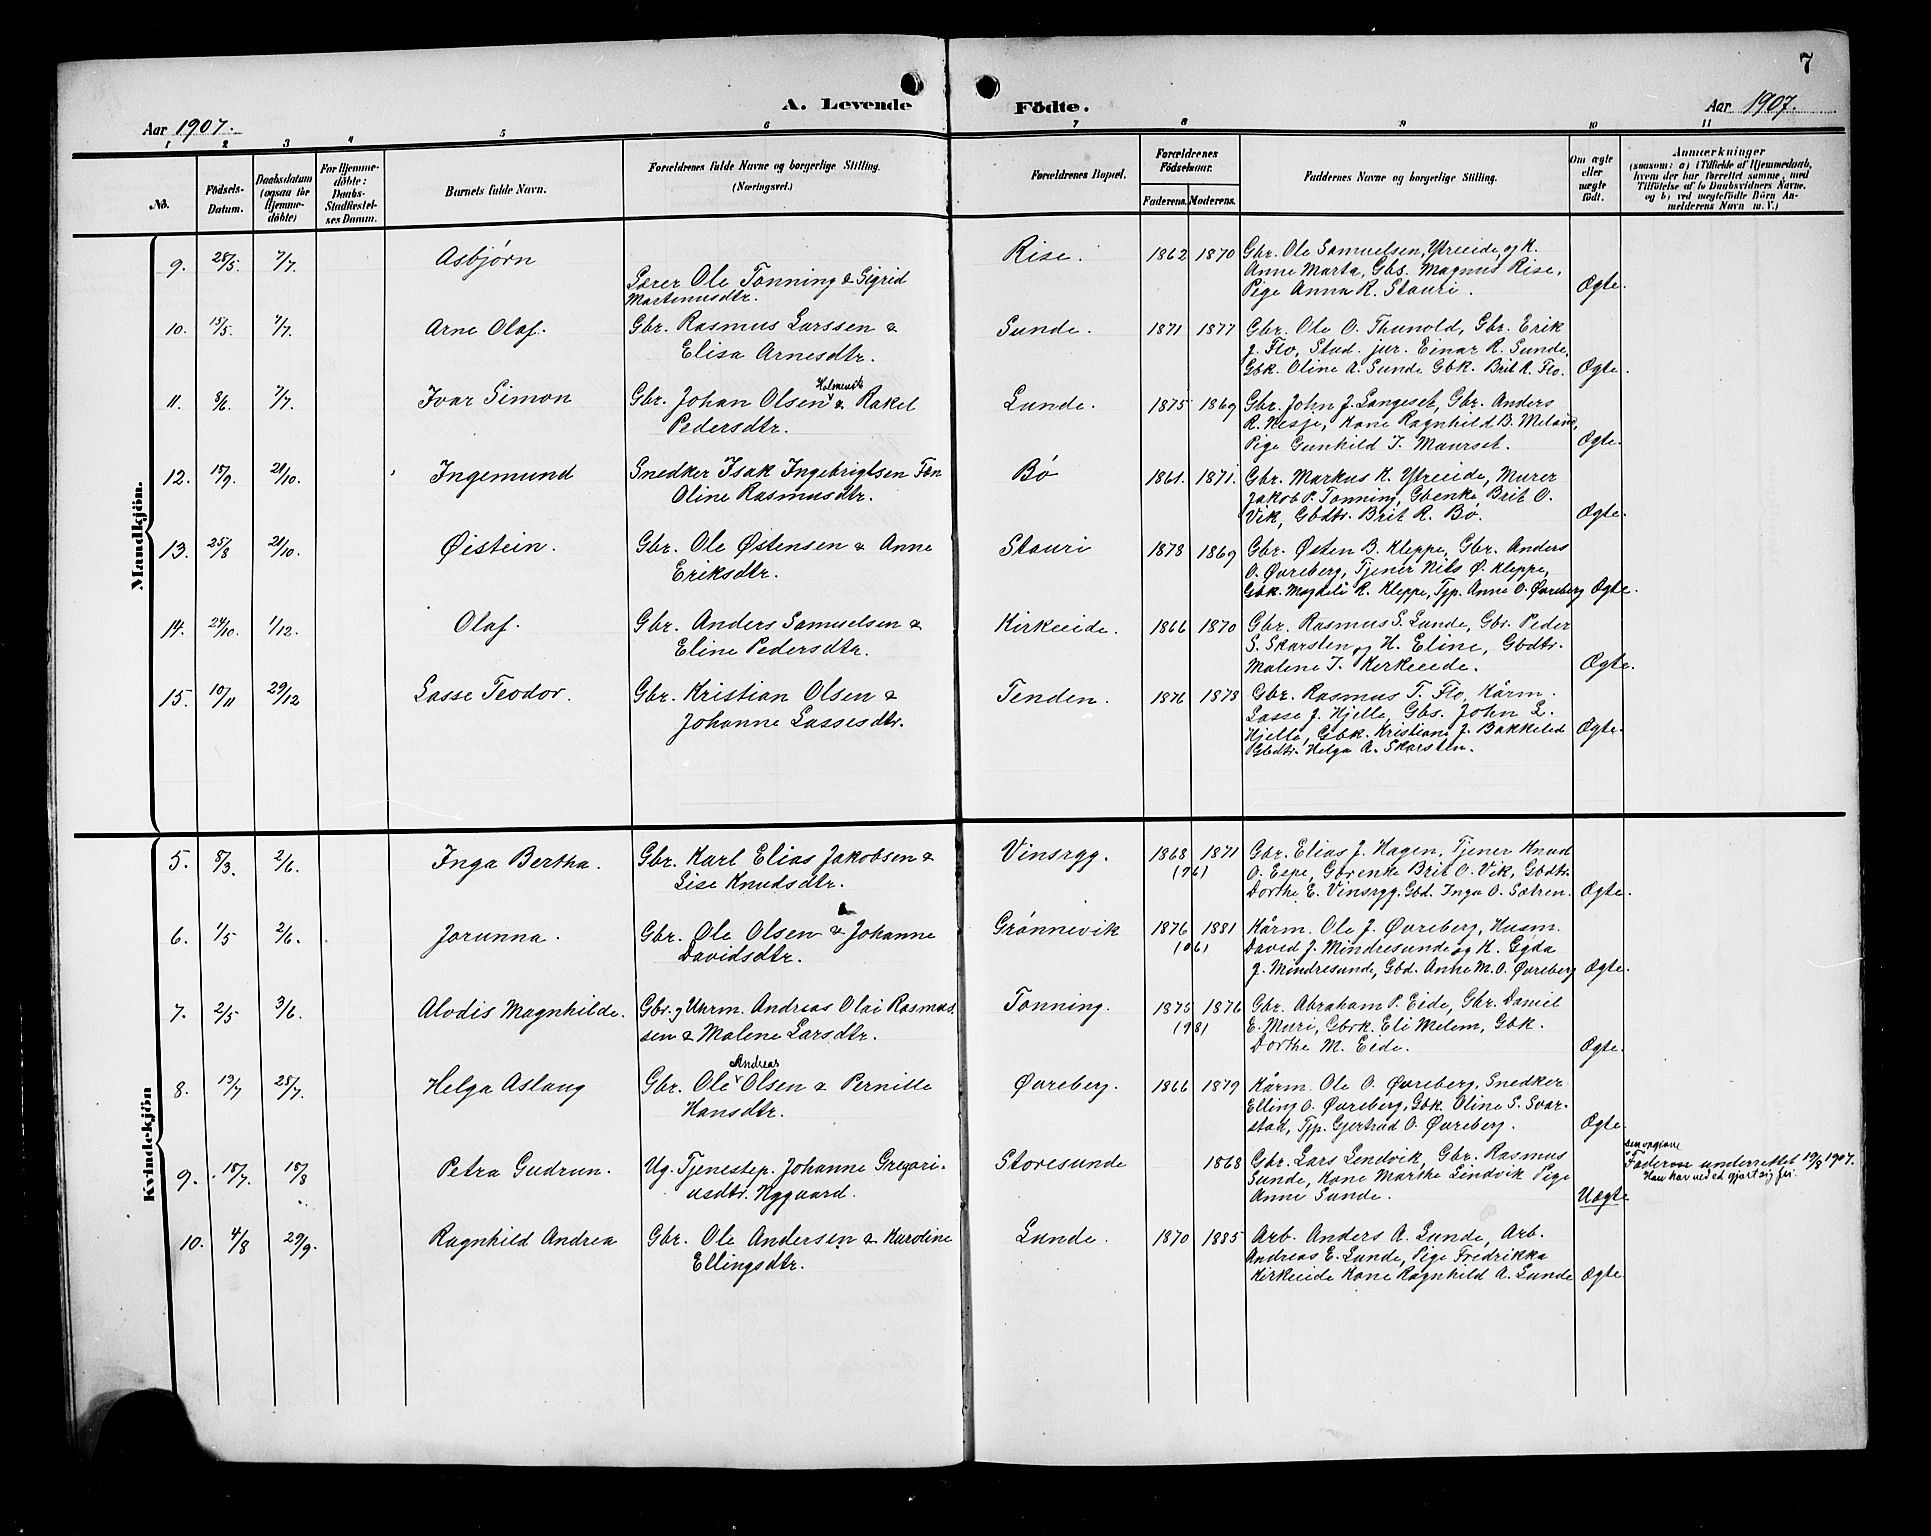 7
A. Levende Födte.
Aar 1907. Aar 1907.
1 2 3 4 5 6 7 8 9 10 11
No.
Födsels-
Datum.
Daabsdatum
(ogsaa for
Hjemme-
döbte)
For Hjemme-
döbte:
Daabs-
Stadfæstel-
ses Datum.
Barnets fulde Navn.
Forældrenes fulde Navne og borgerlige Stilling.
(Næringsvei.)
Forældrenes Bopæl.
Forældrenes
Födselsaar.
Faderens. Moderens.
Faddernes Navne og borgerlige Stilling.
Om ægte
eller
uægte
födt.
Anmærkninger
(saasom: a) i Tilfælde af Hjemmedaab,
hvem der har forrettet samme, med
Tilföielse af to Daabsvidners Navne,
og b) ved uægtefödte Börn An-
melderens Navn m. V.)
Mandkjön.
9. 28/5. 7/7. Asbjørn
Lærer Ole Tonning & Sigrid
Martenusdtr.
Rise. 1862 1870 Gbr. Ole Samuelsen, Ytreeide, og K.
Anne Marta, Gbs. Magnus Rise,
Pige Anna R. Stauri. Ægte.
10. 15/5. 7/7. Arne Olaf. Gbr. Rasmus Larssen &
Elisa Arnesdtr.
Sunde. 1871 1877 Gbr. Ole O. Thunold, Gbr. Erik
J. Flo, Stud. jur. Einar R. Sunde,
Gbk. Oline A. Sunde Gbk. Brit R. Flo. Ægte.
11. 8/6. 7/7. Ivar Simon Gbr. Johan Olsen Holmevik & Rakel
Pedersdtr.
Lunde. 1875 1869 Gbr. John J. Langeset, Gbr. Anders
R. Nesje, Kone Ragnhild B. Melane,
Pige Gunhild I. Maurset. Ægte.
12. 18/9. 21/10. Ingemund Snedker Isak Ingebrigtsen Fæn
Oline Rasmusdtr.
Bø 1861. 1871. Gbr. Markus K. Ytreeide, Murer
Jakob P. Tonning, Gbenke Brit O.
Vik, Gbdtr. Brit R. Bø. Ægte.
13. 25/8 21/10. Øistein. Gbr. Ole Østensen & Anne
Eriksdtr.
Stauri 1878 1869 Gbr. Østen B. Kleppe, Gbr. Anders
O. Øvreberg, Tjener Nils Ø. Kleppe,
Gbk. Magdeli R. Kleppe, Tjp. Anne O. Øvreberg Ægte.
14. 24/10. 1/12. Olaf. Gbr. Anders Samuelsen &
Eline Pedersdtr.
Kirkeeide. 1866 1870 Gbr. Rasmus S. Lunde, Gbr. Peder
S. Skarsten og H. Eline, Gbdtr.
Malene I. Kirkeeide. Ægte.
15. 10/11 29/12 Lasse Teodor. Gbr. Kristian Olsen &
Johanne Lassesdtr.
Tenden. 1876 1878 Gbr. Rasmus T. Flo, Kårm.
Lasse J. Hjelle, Gbs. John L.
Hjelle, Gbk. Kristiane J. Bakkelid
Gbdtr. Helga A. Skarsten. Ægte.
Kvindekjön
5. 8/3. 2/6. Inga Bertha. Gbr. Karl Elias Jakobsen &
Lise Knudsdtr.
Vinsrygg. 1868 1871 (96) Gbr. Elias J. Hagen, Tjener Knud
O. Espe, Gbrenke Brit O. Vik, Gbdtr.
Dorthe E. Vinsrygg. Gbd. Inga O. Sætren. Ægte.
6. 1/5 2/6. Jorunna. Gbr. Ole Olsen & Johanne
Davidsdtr.
Grønnevik 1876 1881 (06) Kårm. Ole J. Øvreberg, Husm.
David J. Mindresunde og K. Gyda
J. Mindresunde, Gbd. Anne M. O. Øvreberg Ægte.
7. 2/5 3/6. Alodis Magnhilde. Gbr. og Uhrm. Andreas Olai Rasmus-
sen & Malene Larsdtr.
Tonning. 1875 1876 (98) Gbr. Abraham P. Eide, Gbr. Daniel
E. Muri, Gbrk. Eli Melem, Gbk.
Dorthe M. Eide. Ægte.
8. 19/7 28/7. Helga Aslaug Gbr. Ole Andreas Olsen & Pernille
Hansdtr.
Øvreberg. 1866 1879 Kårm. Ole O. Øvreberg, Snedker
Elling O. Øvreberg, Gbk. Oline S. Svar-
stad, Tjp. Gjertrud O. Øvreberg. Ægte.
9. 18/7. 18/8 Petra Gudrun. Ug. Tjenestep. Johanne Gregori-
usdtr. Nygaard.
Storesunde 1868 Gbr. Lars Lindvik, Gbr. Rasmus
Sunde, Kone Marthe Lindvik Pige
Anne Sunde. Uægte
Faderen underrettet 19/8 1907.
10. 4/8 29/9. Ragnhild Andrea Gbr. Ole Andersen & Karoline
Ellingsdtr.
Lunde. 1870 1885 Arb. Anders A. Lunde, Arb.
Andreas E. Lunde, Pige Fredrikka
Kirkeeide Kone Ragnhild A. Lunde Ægte.